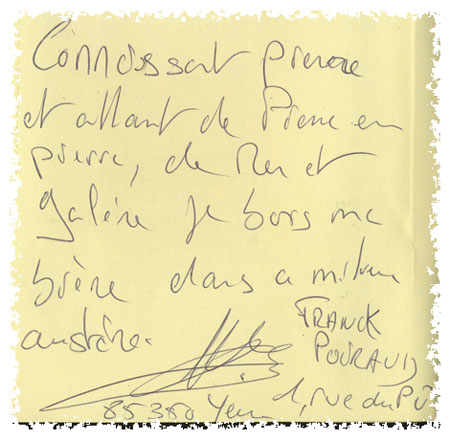 Connaissant pierre
et allant de Pierre en
pierre, de Mer et
galère je bois ma
bière dans ce milieu
austère.
FRANCK
POIRAUD
1, rue du
85350 Yeu